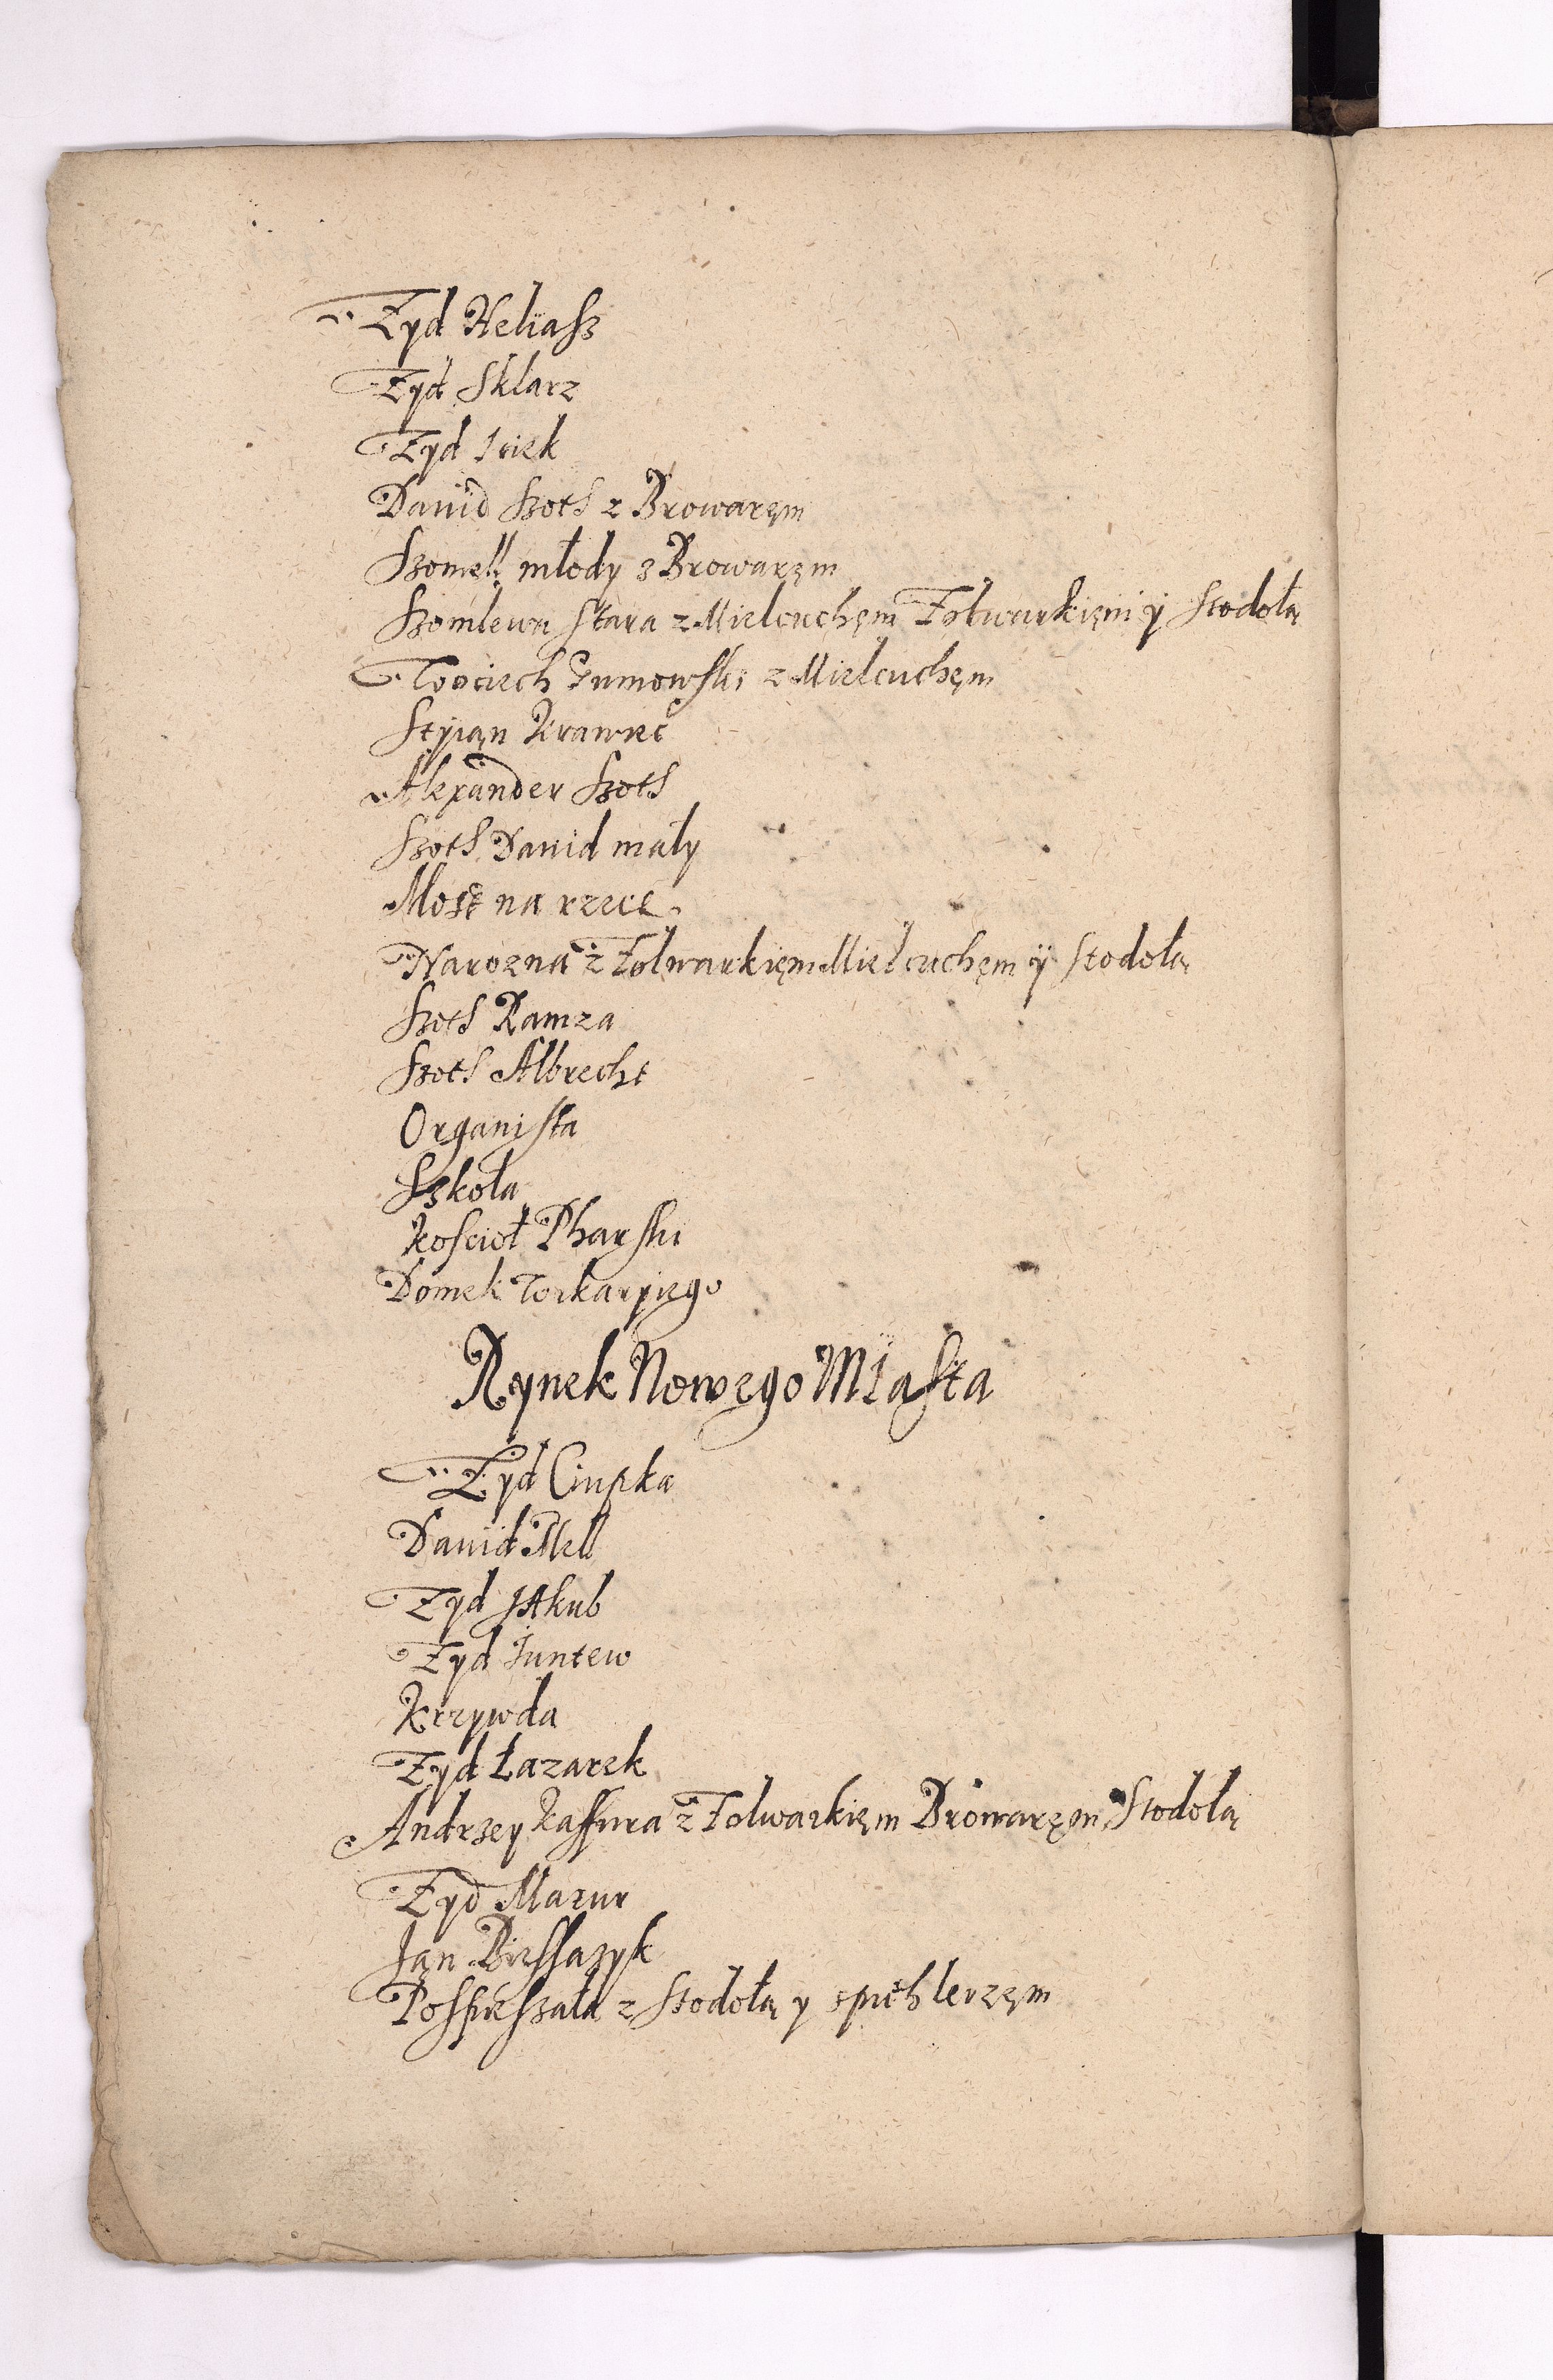 Żyd Heliasz
Żyd Sklarz
Żyd Iciek
Dauid Szots z Browaręm
Szomell młody z Browaręm
Szomlewa Stara z Mielcuchęm Folwarkięm y Stodołą
Woiciech Gumowski z Mielcuchęm
Krawiec
Alexander Szots
Szots Dauid mały
Most na rzece
Narozna z Folwarkięm Mielcuchęm y Stodołą
Szots Ramza
Szots Albrecht
Organista
Szkoła
Kościoł Pharski
Domek
Rynek Nowego Miasta
Żyd Ciupka
Dauid Mell
Żyd Jakub
Żyd Juntew
Krzywda
Żyd Łazarek
Andrzey Kassura z Folwarkięm Browaręm Stodołą
Żyd Mazur
Jan
Pospieszała z Stodołą y spichlerzęm